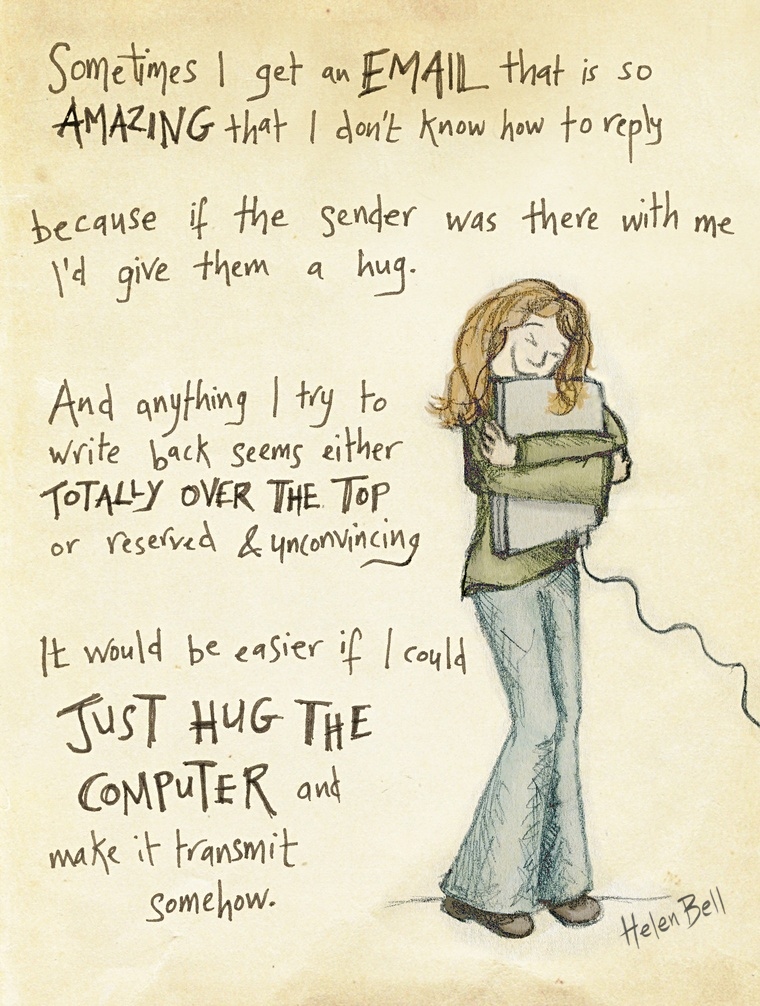 Sometimes I get an EMAIL that is so
AMAZING that I don't know how to reply
because if the sender was there with me
I'd give them a hug.
And anything I try to
write back seems either
TOTALLY OVER THE TOP
or reserved & unconvincing
It would be easier if I could
JUST HUG THE
COMPUTER and
make it transmit
somehow.
Helen Bell